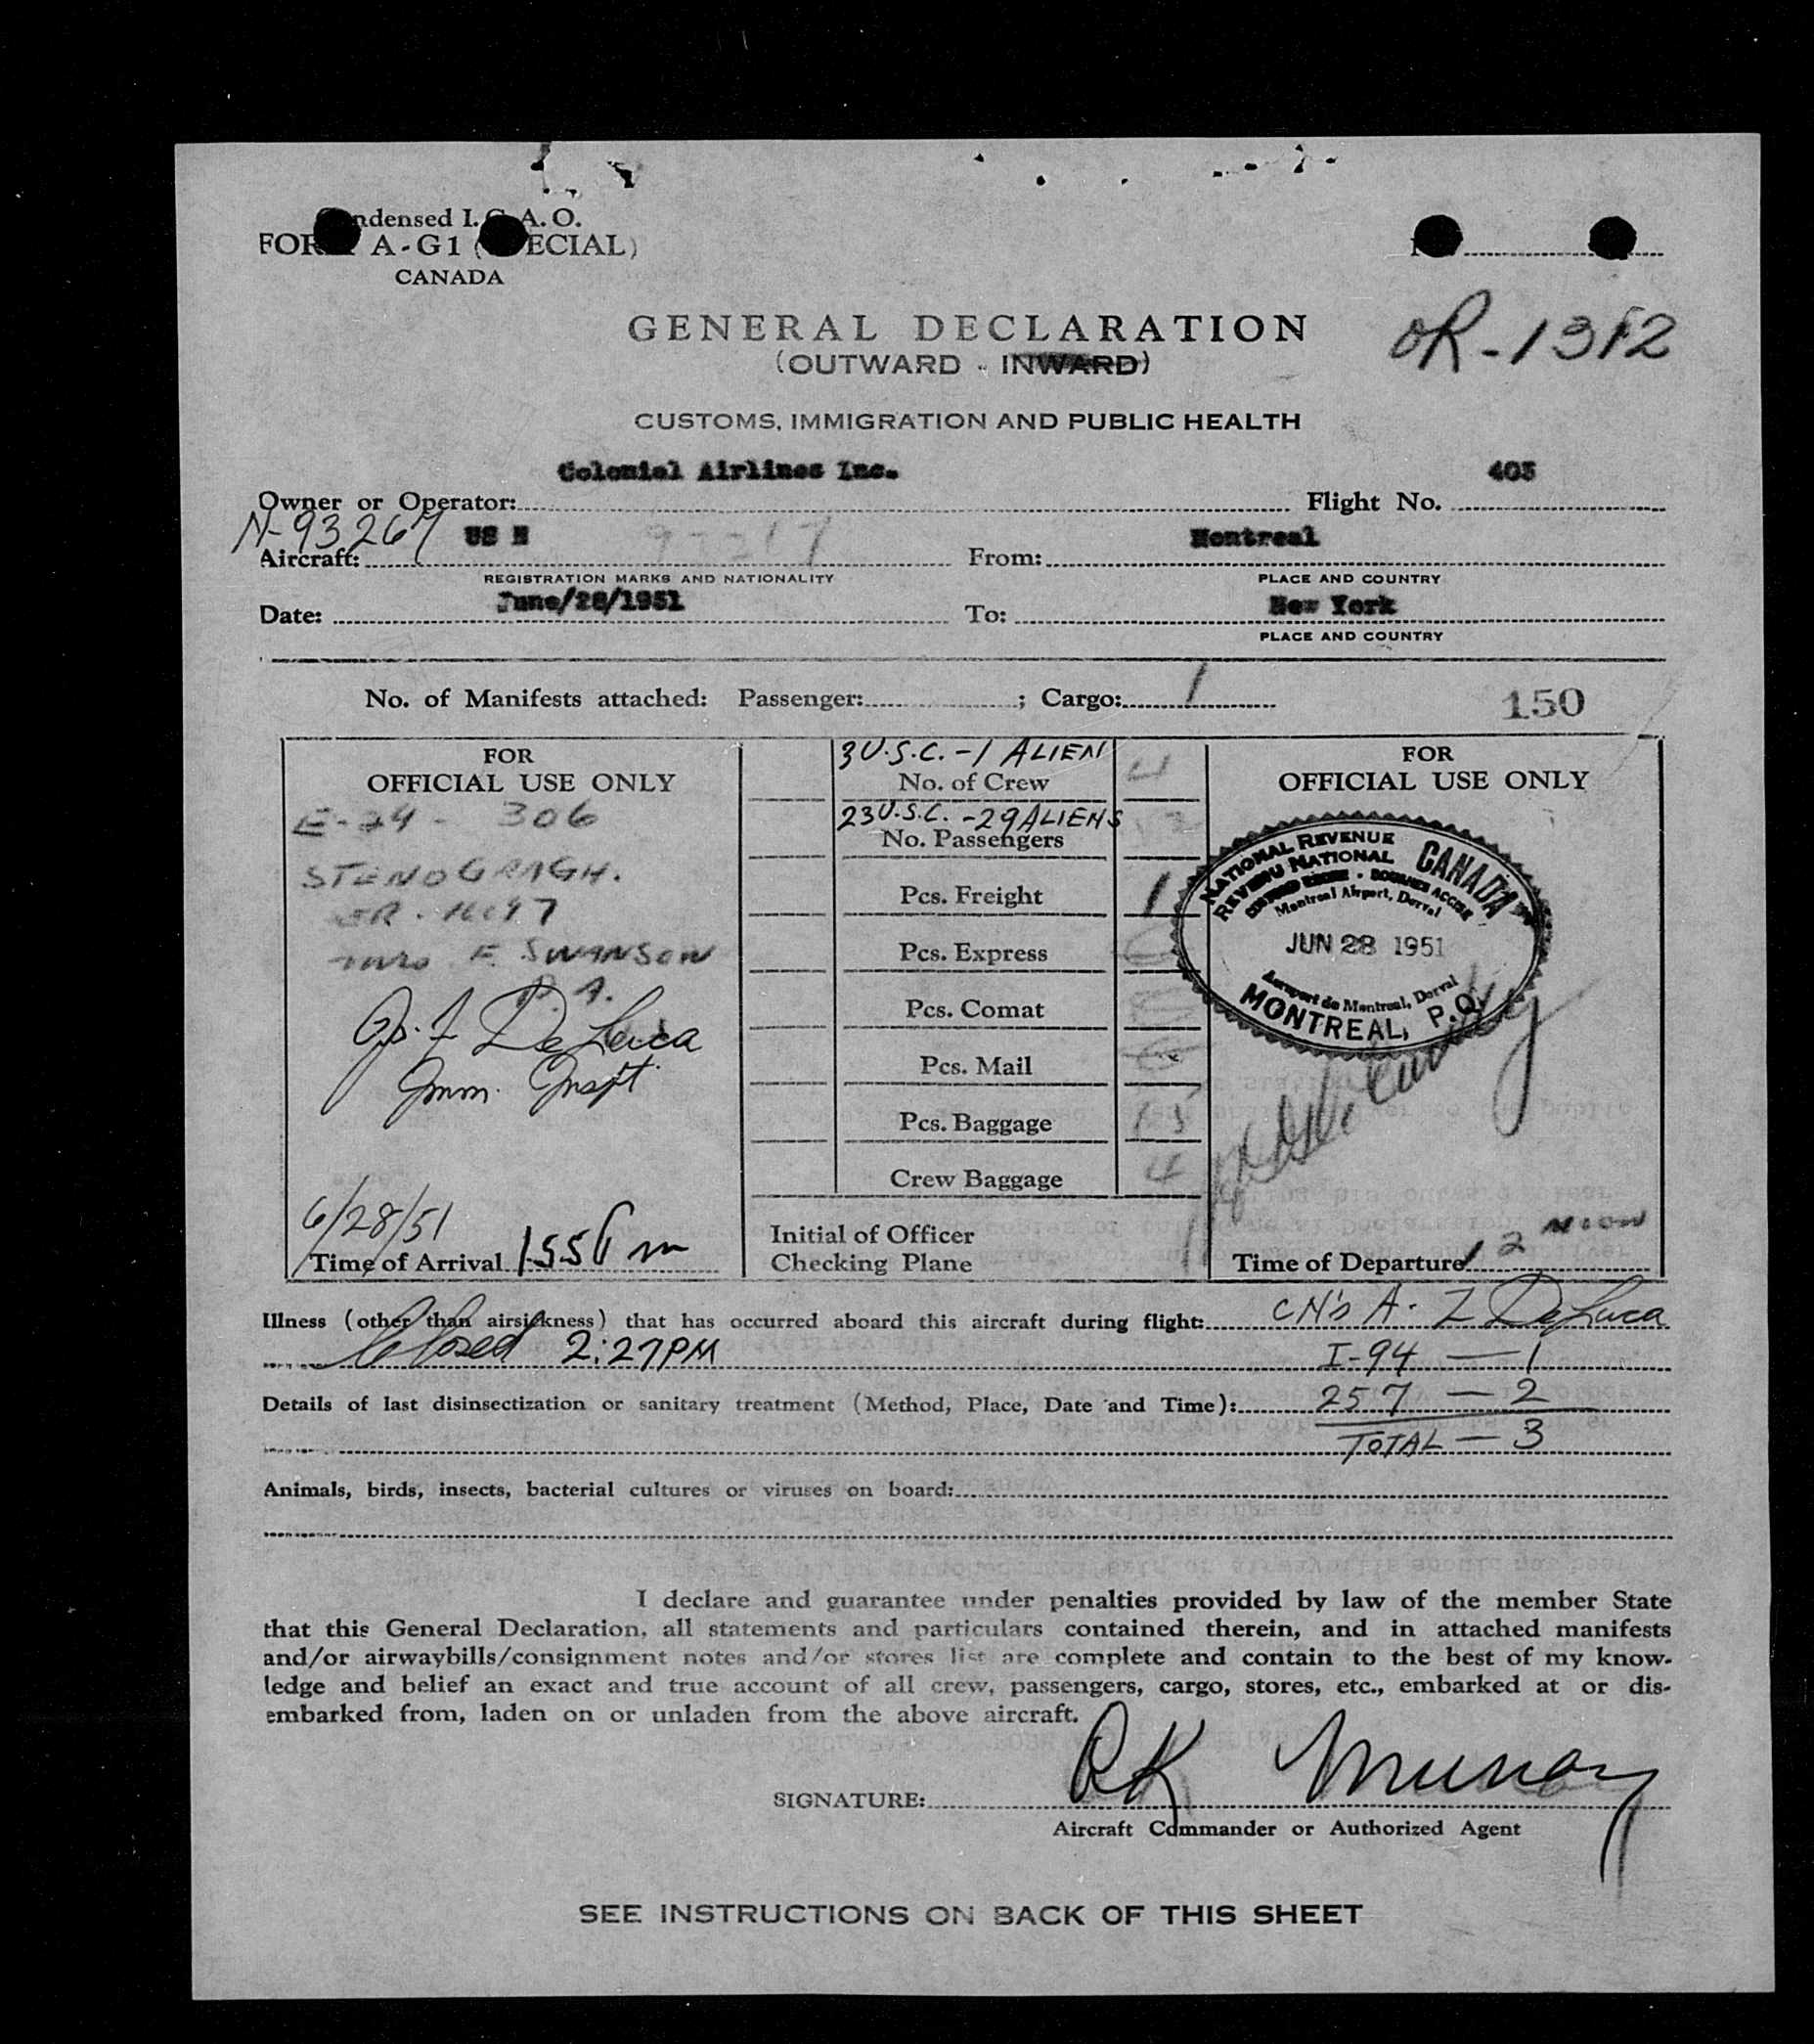 Condensed I.C.A.O.
FORM A-G1 (SPECIAL)
CANADA
OR-1312
GENERAL DECLARATION
(OUTWARD - INWARD)
CUSTOMS, IMMIGRATION AND PUBLIC HEALTH
Owner or Operator: Colonial Airlines Inc. Flight No. 403
N-93267
Aircraft: US N From: Montreal
REGISTRATION MARKS AND NATIONALITY PLACE AND COUNTRY
Date: June/28/1951 To: New York
PLACE AND COUNTRY
No. of Manifests attached: Passenger: ; Cargo: 1 150
FOR
OFFICIAL USE ONLY
E-24- 306
STENOGRAGH.
F. SWANSON
DeLuca
Imm. Inspt.
6/28/51
Time of Arrival 1:55 P m
3 U.S.C. - 1 ALIEN
No. of Crew 4
23 U.S.C. - 29 ALIENS
No. Passengers
Pcs. Freight 1
Pcs. Express
Pcs. Comat
Pcs. Mail
Pcs. Baggage
Crew Baggage 4
Initial of Officer
Checking Plane
FOR
OFFICIAL USE ONLY
NATIONAL REVENUE
REVENU NATIONAL
CANADA
Montreal Airport, Dorval
JUN 28 1951
Aeroport de Montreal, Dorval
MONTREAL, P.Q.
Time of Departure 12 NOON
Illness (other than airsickness) that has occurred aboard this aircraft during flight: CN's A. Z DeLuca
Closed 2:27PM I-94 — 1
Details of last disinsectization or sanitary treatment (Method, Place, Date and Time): 257 — 2
TOTAL — 3
Animals, birds, insects, bacterial cultures or viruses on board:
I declare and guarantee under penalties provided by law of the member State
that this General Declaration, all statements and particulars contained therein, and in attached manifests
and/or airwaybills/consignment notes and/or stores list are complete and contain to the best of my know-
ledge and belief an exact and true account of all crew, passengers, cargo, stores, etc., embarked at or dis-
embarked from, laden on or unladen from the above aircraft.
SIGNATURE: RK Murray
Aircraft Commander or Authorized Agent
SEE INSTRUCTIONS ON BACK OF THIS SHEET